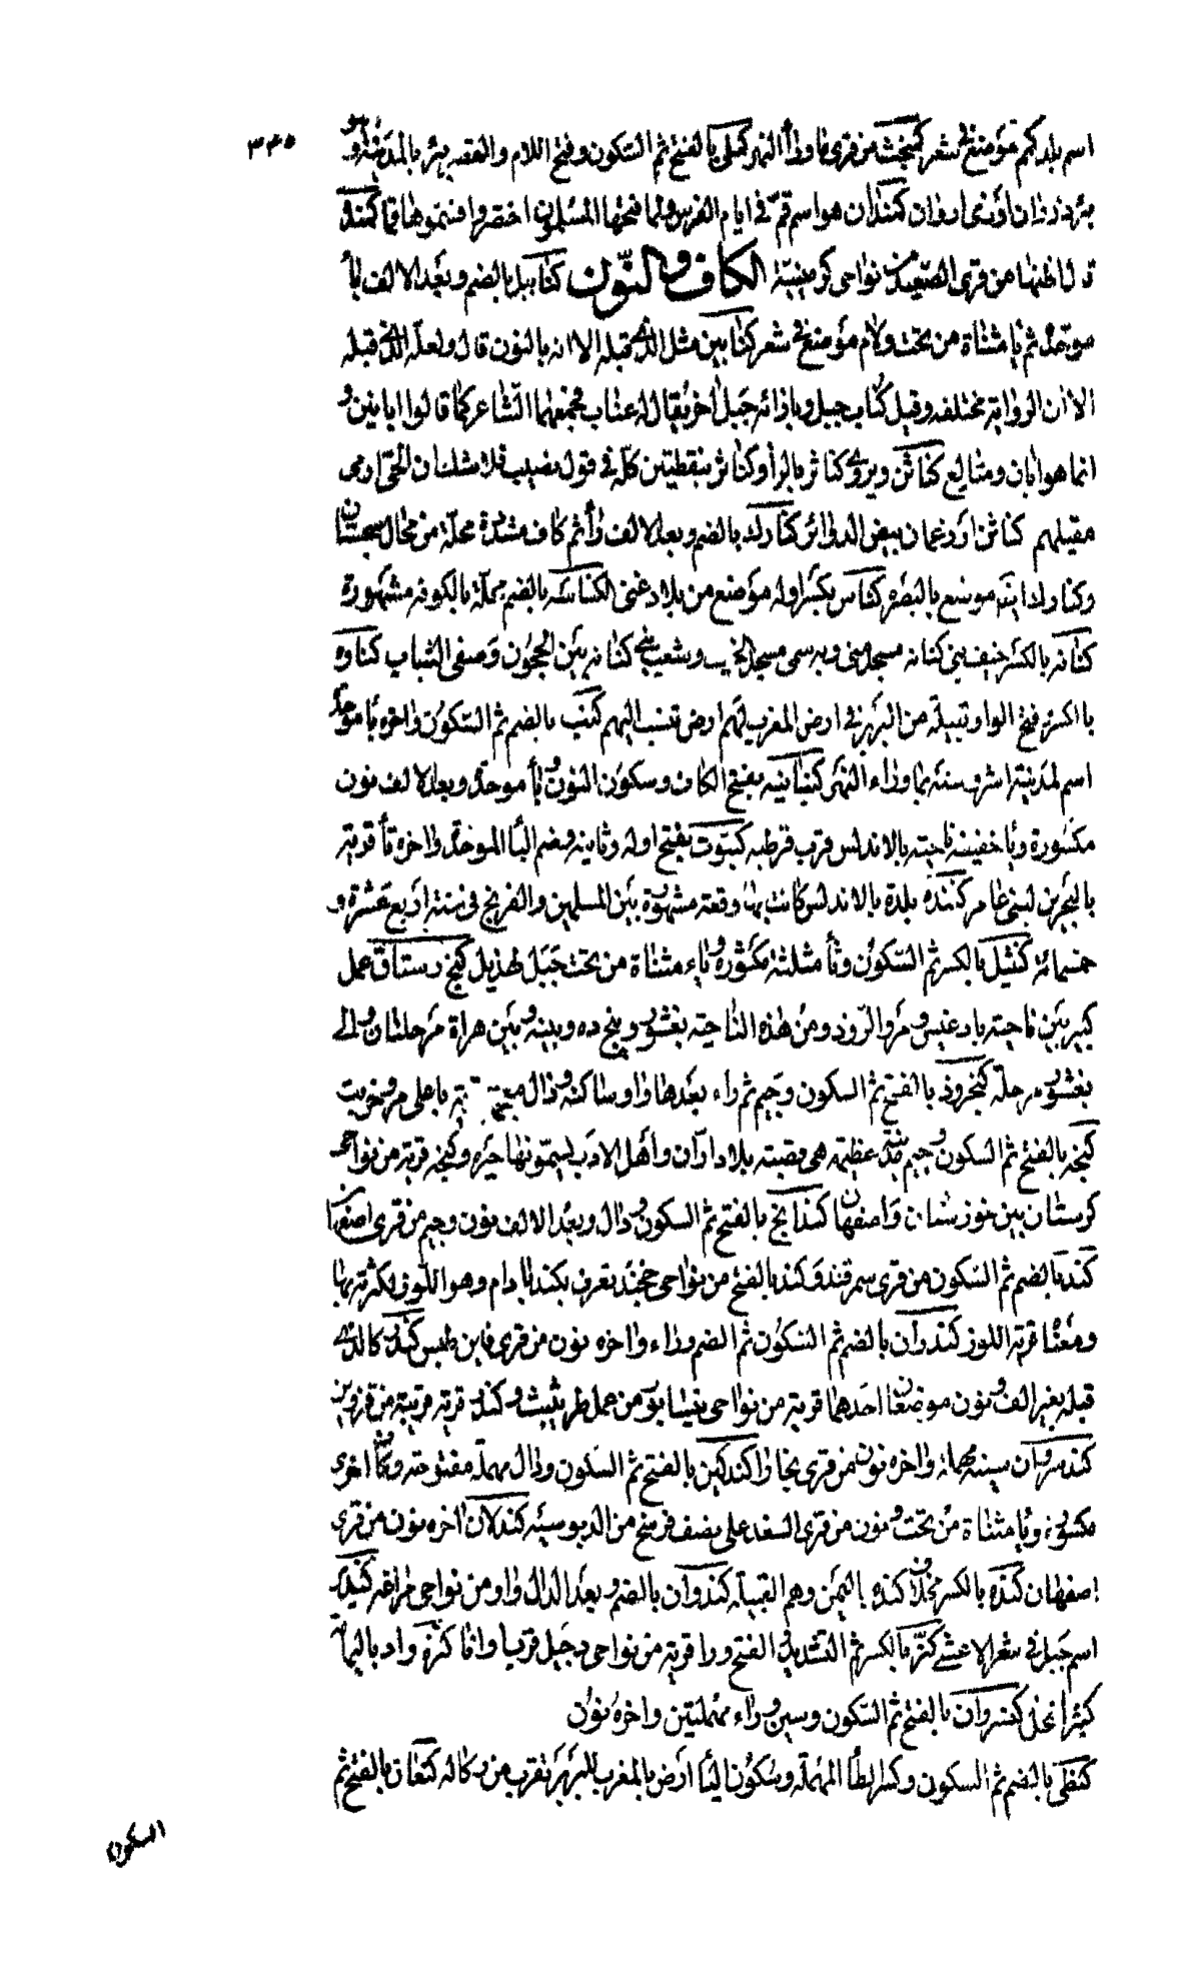 اسم بلد كم موضع فى شعر كمنجث من قرى ما وراء النهر كملى بالفتح ثم السكون وفتح اللام والقصر بئر بالمدينة وهو
بئر ذروان او ذى اروان كمندان هو اسم قم فى ايام الفرس ولما فتحها المسلمون اختصروا فسموها قما كمند
قال اظنها من قرى الصغد من نواحى كرمينية الكاف والنون كنابيل بالضم وبعد الالف با
موحدة ثم يا مثناة من تحت ولام موضع فى شعر كنابين مثل الذى قبله الا انه بالنون قال ولعله الذى قبله
الا ان الرواية مختلفة وقيل كناب جبل وبازائه جبل اخر يقال له عناب فجمعهما الشاعر كما قالوا ابانين و
انما هو ابان ومتالع كناثن ويروى كناثر بالراء وكناثر بنقطتين كله فى قول نصيب فلا شك ان الحى ادنى
مقيلهم كناثن او رغمان بيض الدوائر كنارك بالضم وبعد الالف راء ثم كاف مشددة محلة من محال سجستان
وكنارك ايضا موضع بالبصره كناس بكسر اوله موضع من بلاد غنى الكناسة بالضم محلة بالكوفه مشهورة
كنانه بالكسر خيف بنى كنانه مسجد منى وبه سمى مسجد الخيف وشعب بنى كنانه بين الحجون وصفى الشباب كناوه
بالكسر وفتح الواو قبيلة من البربر فى ارض المغرب لهم ارض تنسب اليهم كنب بالضم ثم السكون واخره با موحدة
اسم لمدينة اشروسنه بما وراء النهر كنبانيه بفتح الكاف وسكون النون وبا موحدة وبعد الالف نون
مكسورة ويا خفيفة ناحيه بالاندلس قرب قرطبه كنبوت بفتح اوله وثانيه وضم البا الموحدة واخره تا قرية
بالبحرين لبنى عامر كنتده بلدة بالاندلس كانت بها وقعة مشهورة بين المسلمين والفرنج فى سنة اربع عشرة و
خمسمائة كنثيل بالكسر ثم السكون وثا مثلثة مكسورة ويا مثناة من تحت جبل لهذيل كنج رستاق عمل
كبير بين ناحية بادغيس ومرو الروذ ومن هذه الناحية بغشور وپنج ده وبينه وبين هراة مرحلتان والى
بغشور مرحلة كنجروذ بالفتح ثم السكون وجيم ثم راء بعدها واو ساكنة وذال معجمة قرية باعلى مرو خربت
كنجه بالفتح ثم السكون وجيم مدينة عظيمه هى قصبته بلاد اران واهل الادب يسمونها جنزه وكنجه قرية من نواحى
كرستان بين خوزستان واصفهان كندانج بالفتح ثم السكون ودال وبعد الالف نون وجيم من قرى اصفهان
كند بالضم ثم السكون من قرى سمرقند وكند بالفتح من نواحى خجند تعرف بكند بادام وهو اللوز لكثرته بها
ومعناه قرية اللوز كندران بالضم ثم السكون ثم الضم وراء واخره نون من قرى قاين طبس كندر كالذى
قبله بغير الف ونون موضعان احدهما قرية من نواحى نيسابور من عمل طريثيث وكندر قرية قريبة من قزوين
كندسروان سينه مهملة واخره نون من قرى بخارا كندكين بالفتح ثم السكون ودال مهملة مفتوحة وكاف اخرى
مكسورة ويا مثناة من تحت ونون من قرى السغد على نصف فرسخ من الدبوسيه كندلان اخره نون من قرى
اصفهان كنده بالكسر مخلاف كنده باليمن وهم القبيلة كندوان بالضم وبعد الدال واو من نواحى مراغه كنديد
اسم جبل فى شعر الاعشى كنر بالكسر ثم التشديد فى الفتح ورا قرية من نواحى دجيل قرب اوانا كنزه واد باليمامة
كثير النخل كنسروان بالفتح ثم السكون وسين وراء مهملتين واخره نون
كنطى بالضم ثم السكون وكسر الطاء المهملة وسكون اليا ارض بالمغرب للبربر تقرب من دكاله كنعان بالفتح ثم
السكون